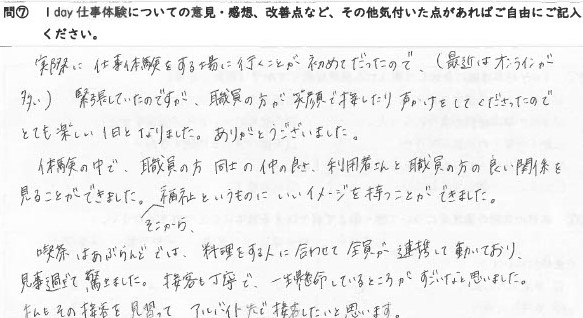 問⑦ 1day 仕事体験についての意見・感想、改善点など、その他気付いた点があればご自由にご記入
ください。
実際に仕事体験をする場に行くことが初めてだったので、(最近はオンラインが
多い) 緊張していたのですが、職員の方が笑顔で接したり声かけをしてくださったので
とても楽しい1日となりました。ありがとうございました。
体験の中で、職員の方同士の仲の良さ、利用者さんと職員の方の良い関係を
見ることができました。福祉というものにいいイメージを持つことができました。
そこから、
喫茶はあぶらんどでは、料理をする人に合わせて全員が連携して動いており、
見事過ぎて驚きました。接客も丁寧で、一生懸命しているところがすごいなと思いました。
その接客を見習って アルバイト先で接客したいと思います。